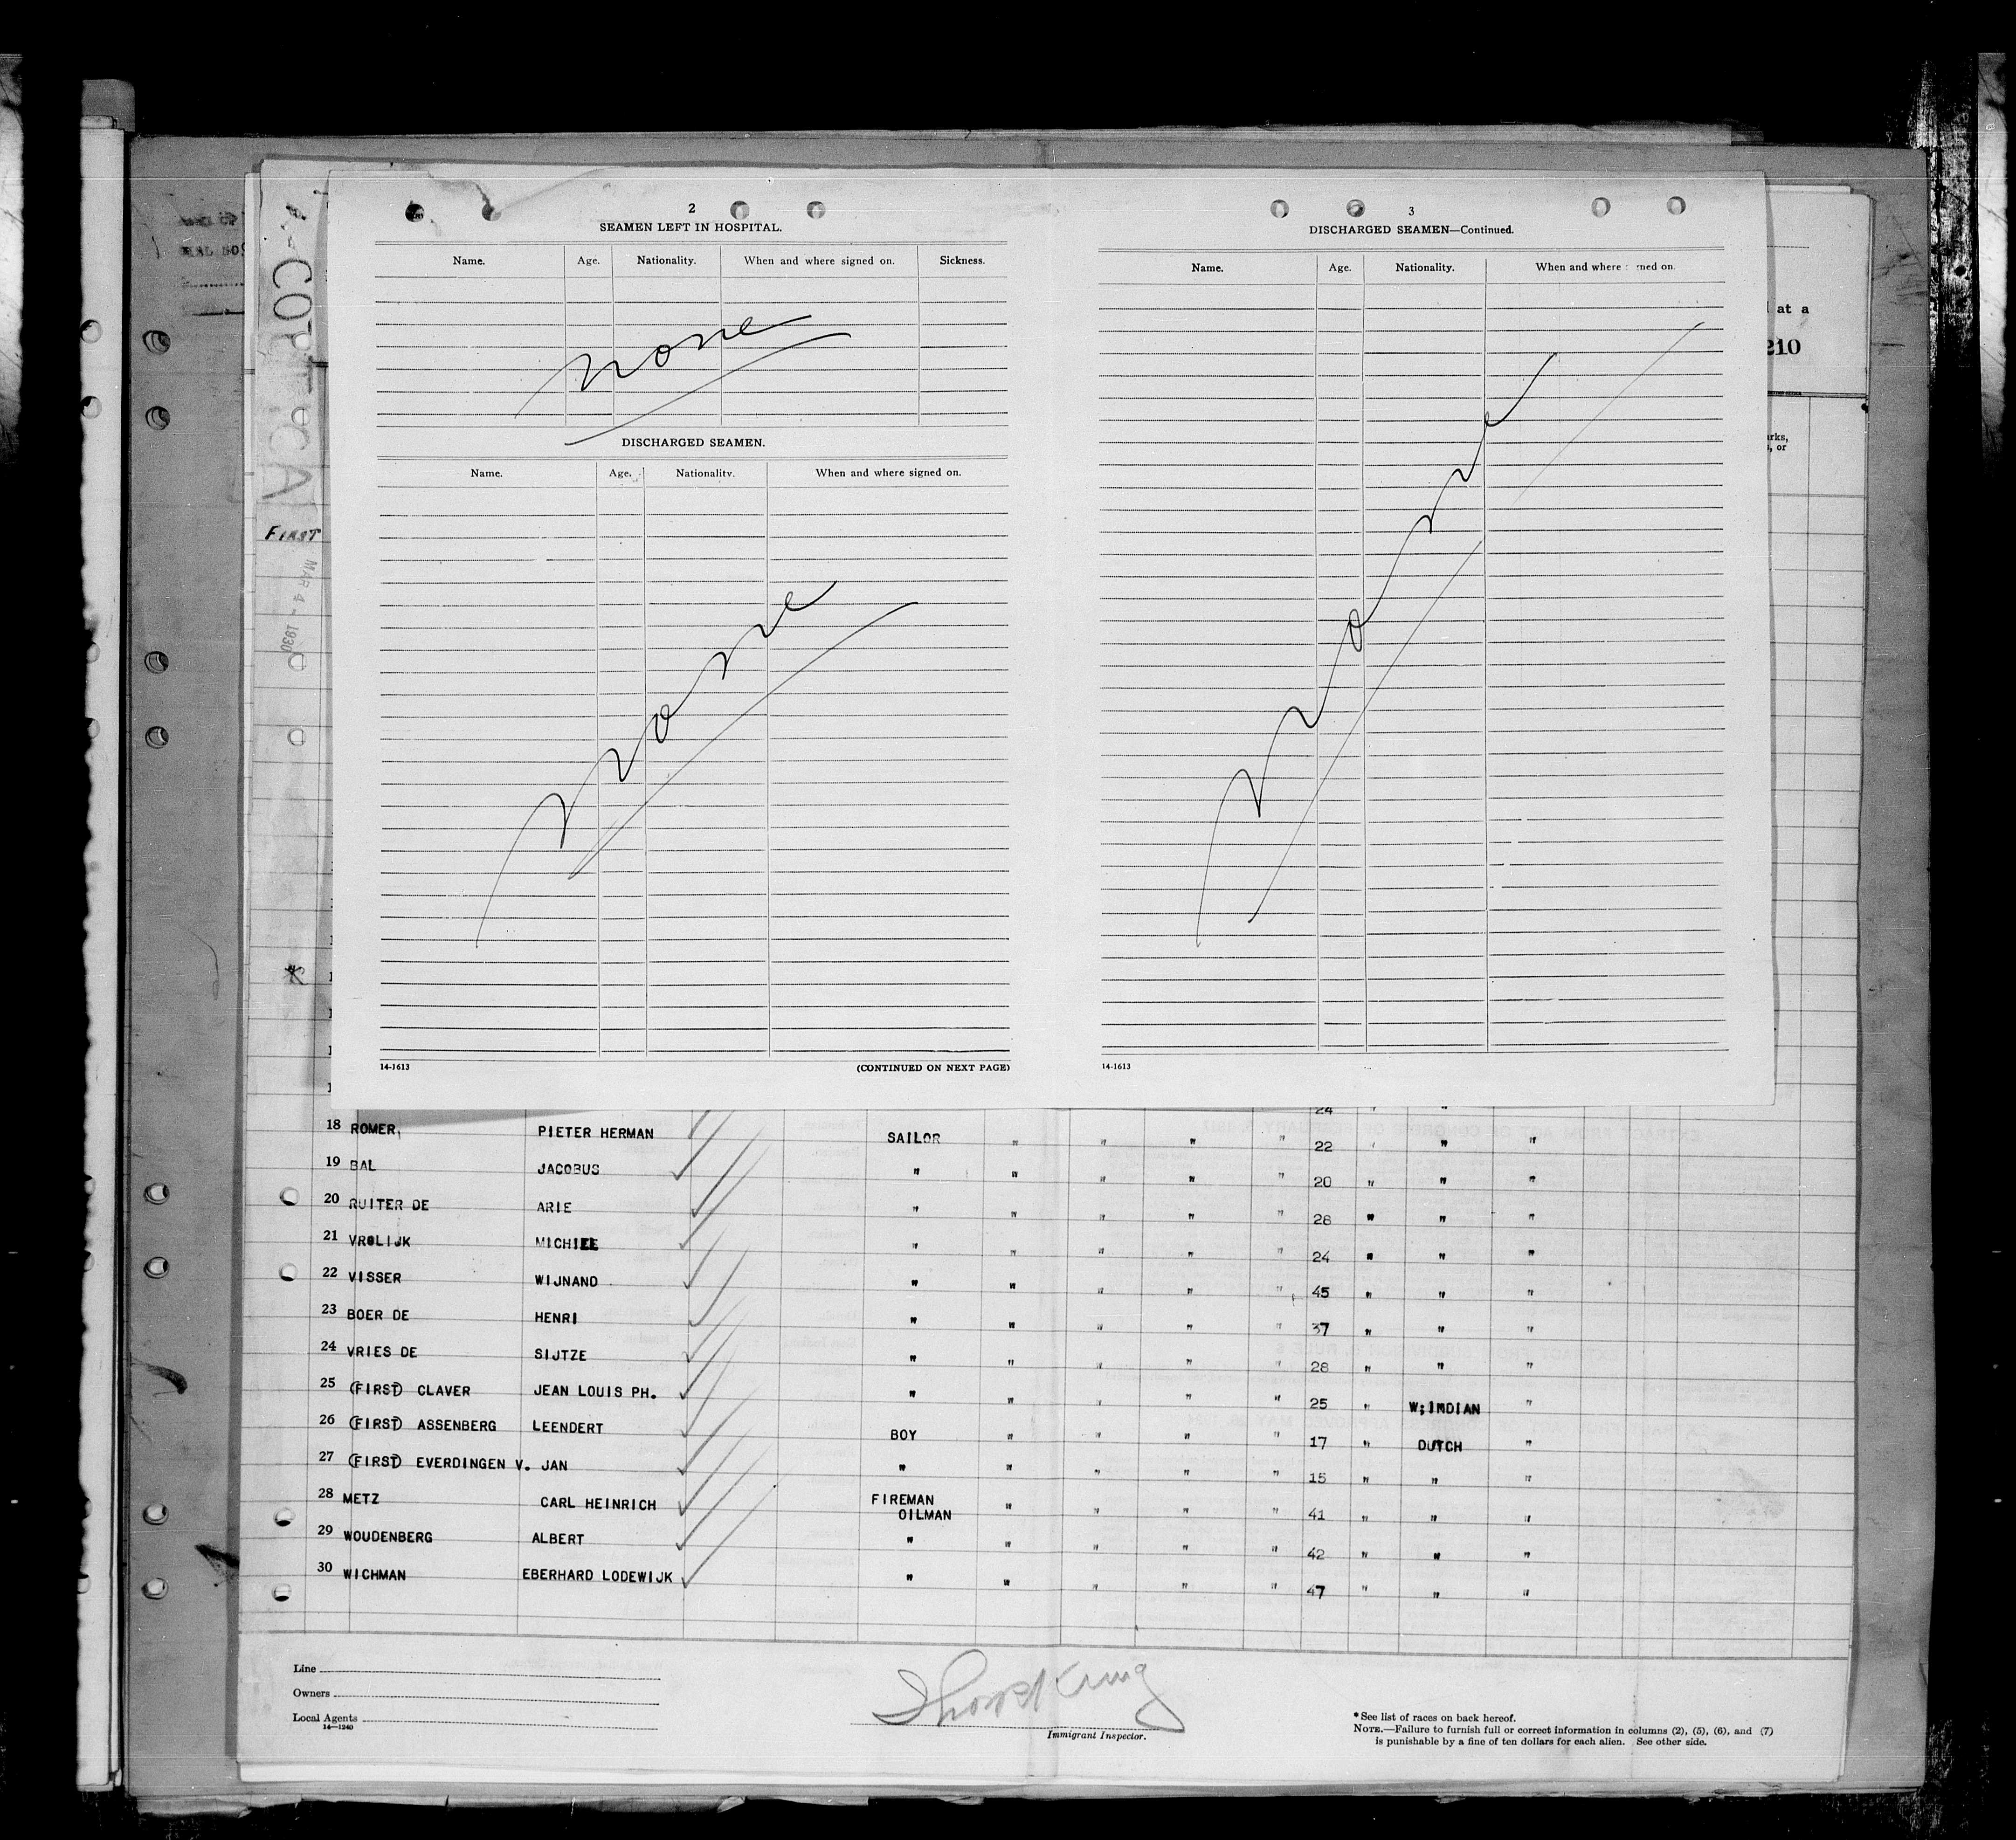 2
SEAMEN LEFT IN HOSPITAL.
Name. Age. Nationality. When and where signed on. Sickness.
none
DISCHARGED SEAMEN.
Name. Age. Nationality. When and where signed on.
none
14-1613 (CONTINUED ON NEXT PAGE)
3
DISCHARGED SEAMEN—Continued.
Name. Age. Nationality. When and where ned on.
none
14-1613
at a
210
or
FIRST
MAR 4 - 1930
24 "
18 ROMER, PIETER HERMAN SAILOR " " " " 22 " " "
19 BAL JACOBUS " " " " " 20 " " "
20 RUITER DE ARIE " " " " " 28 " " "
21 VROLIJK MICHIEL " " " " " 24 " " "
22 VISSER WIJNAND " " " " " 45 " " "
23 BOER DE HENRI " " " " " 37 " " "
24 VRIES DE SIJTZE " " " " " 28 " " "
25 (FIRST) CLAVER JEAN LOUIS PH. " " " " 25 " W;INDIAN "
26 (FIRST) ASSENBERG LEENDERT BOY " " " " 17 " DUTCH "
27 (FIRST) EVERDINGEN V. JAN " " " " " 15 " " "
28 METZ CARL HEINRICH FIREMAN OILMAN " " " " 41 " " "
29 WOUDENBERG ALBERT " " " " " 42 " " "
30 WICHMAN EBERHARD LODEWIJK " " " " " 47 " " "
Line
Owners
Local Agents
14—1240
Immigrant Inspector.
* See list of races on back hereof.
NOTE.—Failure to furnish full or correct information in columns (2), (5), (6), and (7)
is punishable by a fine of ten dollars for each alien. See other side.